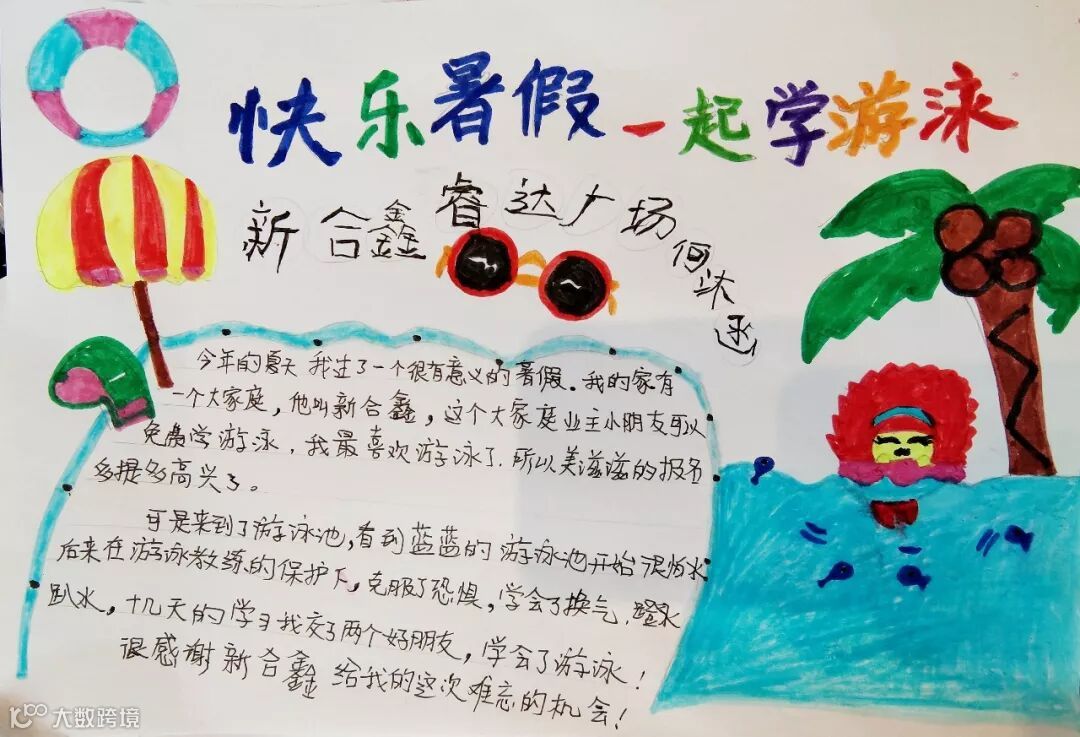 快乐暑假一起学游泳
新合鑫睿达广场何沐函
今年的夏天我过了一个很有意义的暑假。我的家有
一个大家庭,他叫新合鑫,这个大家庭业主小朋友可以
免费学游泳,我最喜欢游泳了.所以美滋滋的报名
多提多高兴了。
可是来到了游泳池,看到蓝蓝的游泳池开始很怕水
后来在游泳教练的保护下,克服了恐惧,学会了换气,蹬水
趴水,十几天的学习我交了两个好朋友,学会了游泳!
很感谢新合鑫给我的这次难忘的机会!
大数跨境